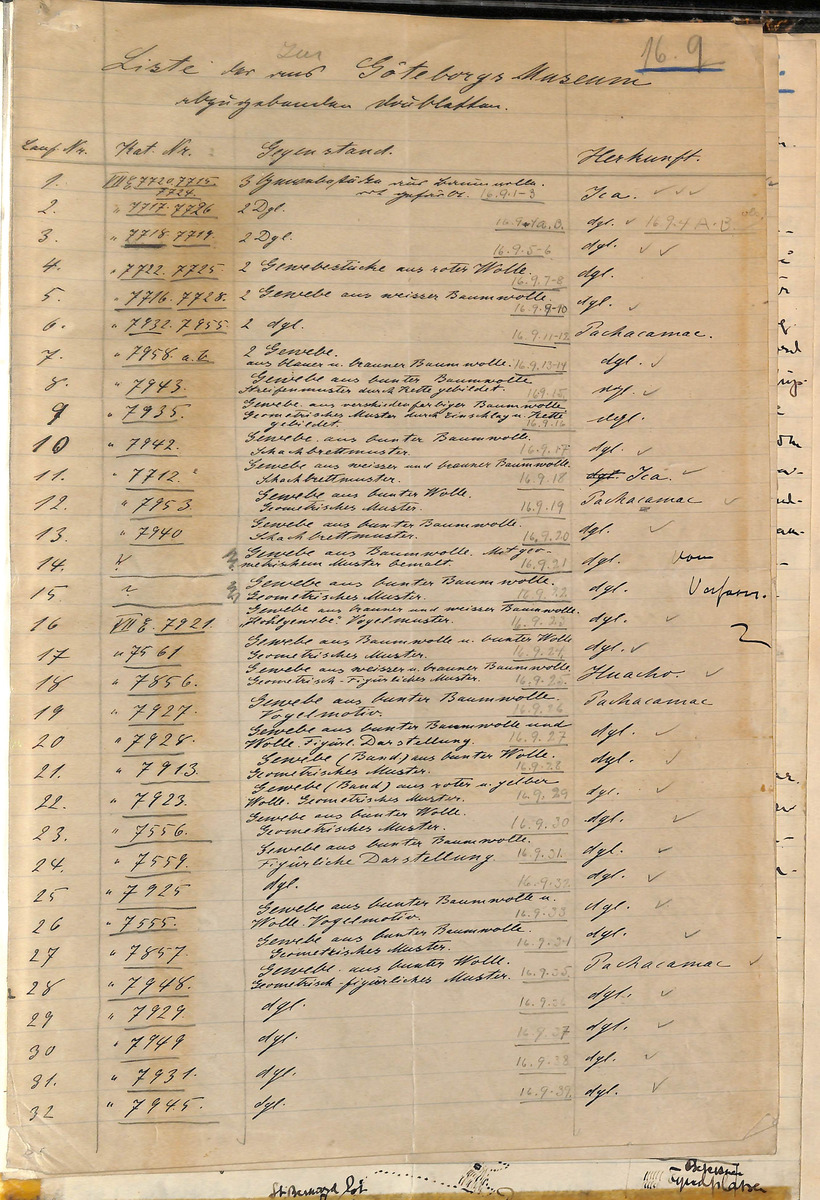 16.9
Zur
Liste der ans Göteborgs Museum
abzugebenden Doubletten.
Lauf. Nr. Kat. Nr. Gegenstand. Herkunft.
1. VII E 7720. 7715. 7724. 3 Gewebestücke aus Baumwolle. rot gefärbt. 16.9.1-3 Ica.
2. " 7717. 7726 2 Dgl. 16.9.4a.B. dgl. 16.9.4 A-B
3. " 7718. 7719. 2 Dgl. 16.9.5-6 dgl.
4. " 7722. 7725 2 Gewebestücke aus roter Wolle. 16.9.7-8 dgl.
5. " 7716. 7728. 2 Gewebe aus weisser Baumwolle. 16.9.9-10 dgl.
6. " 7932. 7955. 2 dgl. 16.9.11-12. Pachacamac.
7. " 7958 a.b 2 Gewebe.
aus blauer u. brauner Baumwolle. 16.9.13-14 dgl.
8. " 7943. Gewebe aus bunter Baumwolle
Streifenmuster durch Kette gebildet. 16.9.15. dgl.
9 " 7935. Gewebe aus verschiedenfarbiger Baumwolle
Geometrisches Muster durch Einschlag u. Kette
gebildet. 16.9.16 dgl.
10 " 7942. Gewebe aus bunter Baumwolle.
Schachbrettmuster. 16.9.17 dgl.
11. " 7712. Gewebe aus weisser und brauner Baumwolle.
Schachbrettmuster. 16.9.18 dgl. Ica.
12. " 7953 Gewebe aus bunter Wolle.
Geometrisches Muster. 16.9.19 Pachacamac
13. " 7940 Gewebe aus bunter Baumwolle.
Schachbrettmuster. 16.9.20 dgl.
14. Gewebe aus Baumwolle. Mit geo-
metrischem Muster bemalt. 16.9.21 dgl. vom
15. Gewebe aus bunter Baumwolle.
Geometrisches Muster. 16.9.22. dgl.
16 VII E. 7921. Gewebe aus brauner und weisser Baumwolle.
"Hohlgewebe". Vogelmuster. 16.9.23 dgl.
17 " 7561. Gewebe aus Baumwolle u. bunter Wolle
Geometrisches Muster. 16.9.24. dgl.
18 " 7856. Gewebe aus weisser u. brauner Baumwolle
Geometrisch-Figürliches Muster. 16.9.25. Huacho.
19 " 7927. Gewebe aus bunter Baumwolle.
Vogelmotiv. 16.9.26 Pachacamac
20 " 7928. Gewebe aus bunter Baumwolle und
Wolle. Figürl. Darstellung. 16.9.27 dgl.
21. " 7913. Gewebe (Band) aus bunter Wolle.
Geometrisches Muster. 16.9.28 dgl.
22. " 7923. Gewebe (Band) aus roter u. gelber
Wolle. Geometrisches Muster. 16.9.29 dgl.
23. " 7556. Gewebe aus bunter Wolle.
Geometrisches Muster. 16.9.30 dgl.
24. " 7559. Gewebe aus bunter Baumwolle.
Figürliche Darstellung 16.9.31. dgl.
25 " 7925 dgl. 16.9.32. dgl.
26 " 7555. Gewebe aus bunter Baumwolle u.
Wolle. Vogelmotiv. 16.9.33 dgl.
27 " 7857. Gewebe aus bunter Baumwolle.
Geometrisches Muster. 16.9.34 dgl.
28 " 7948. Gewebe aus bunter Wolle.
Geometrisch-figürliches Muster. 16.9.35. Pachacamac
29 " 7929. dgl. 16.9.36 dgl.
30 " 7949 dgl. 16.9.37 dgl.
31. " 7931. dgl. 16.9.38 dgl.
32 " 7945. dgl. 16.9.39. dgl.